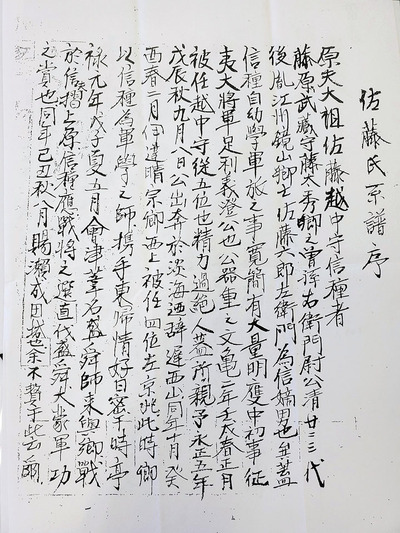 佐藤氏系譜序
原夫大祖佐藤越中守信種者
藤原武蔵守藤太秀郷之曽孫右衛門尉公清廿三代
後胤江州鏡山郷士佐藤六郎左衛門為信嫡男也
信種自幼學軍旅之事寛簡有大量明應中初事征
夷大將軍足利義澄公也公器重之文亀二年壬戌春正月
被任越中守從五位也精力過絶人蓋所親予永正五年
戊辰秋九月八日公出奔於淡海廼辞遅西山同年十月癸
酉春二月伊達晴宗卿西上被任四位左京此時卿
以信種為軍學之師携手東帰情好日密于時亭
禄元年戊子夏五月會津葦名盛舜師来與卿戰
於信摺上原信種應戰將之選直代盛舜大蒙軍功
之賞也同年己丑秋八月賜瀬成田盛余不贅于此云爾